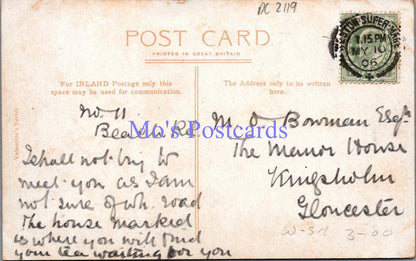 DC 2119
POST CARD.
PRINTED IN GREAT BRITAIN
WESTON-SUPER-MARE
1.15 PM
MY 10
06
For INLAND Postage only this
space may be used for communication.
The Address only to be written
here.
Valentine's Series
No. 11
Beach Rd
I shall not try to
meet you as I am
not sure of wh. road
The house marked
is where you will find
your tea waiting for you
M. O Bowman Esqre
The Manor House
Kingsholm
Gloucester
W-S-M 3-00
Mc's Postcards